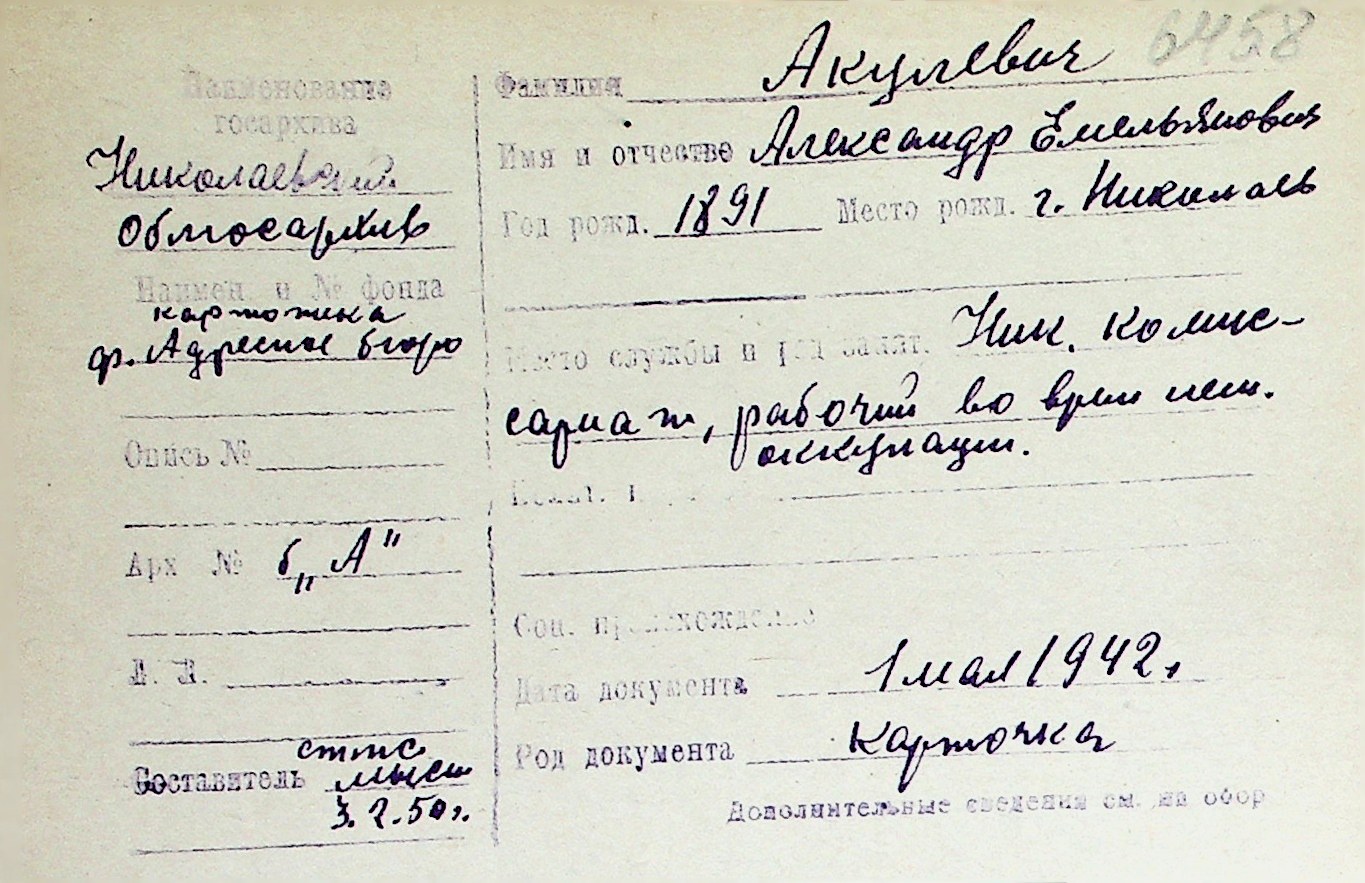 6458
Наименование
госархива
Николаевский
Облгосархив
Наимен. и № фонда
картотека
ф. Адресное бюро
Опись №
Арх №
б„А"
Л. Л.
Составитель
3.2.50г.
Фамилия Акулевич
Имя и отчество Александр Емельянович
Год рожд. 1891 Место рожд. г. Николаев
Место службы и род занят. Ник. комис-
сариат, рабочий во врем нем.
оккупации.
Соц. происхождение
Дата документа 1 мая 1942г.
Род документа карточка
Дополнительные сведения см. на обор